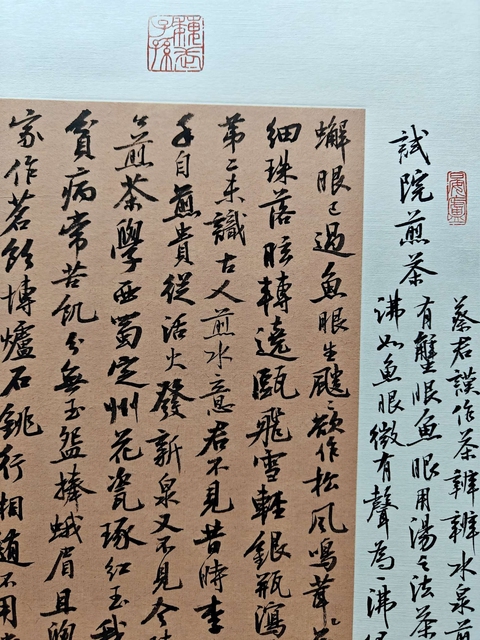 蔡君謨作茶辨辨水泉
試院煎茶
有蟹眼魚眼用湯之法茶
沸如魚眼微有聲為一沸
蠏眼已過魚眼生颼〻欲作松風鳴茸〻
細珠落眩轉遶甌飛雪輕銀瓶瀉
第二未識古人煎水意君不見昔時李
手自煎貴從活火發新泉又不見今時
公煎茶學西蜀定州花瓷琢紅玉我
貧病常苦飢分無玉盌捧蛾眉且
家作茗飲塼爐石銚行相隨不用